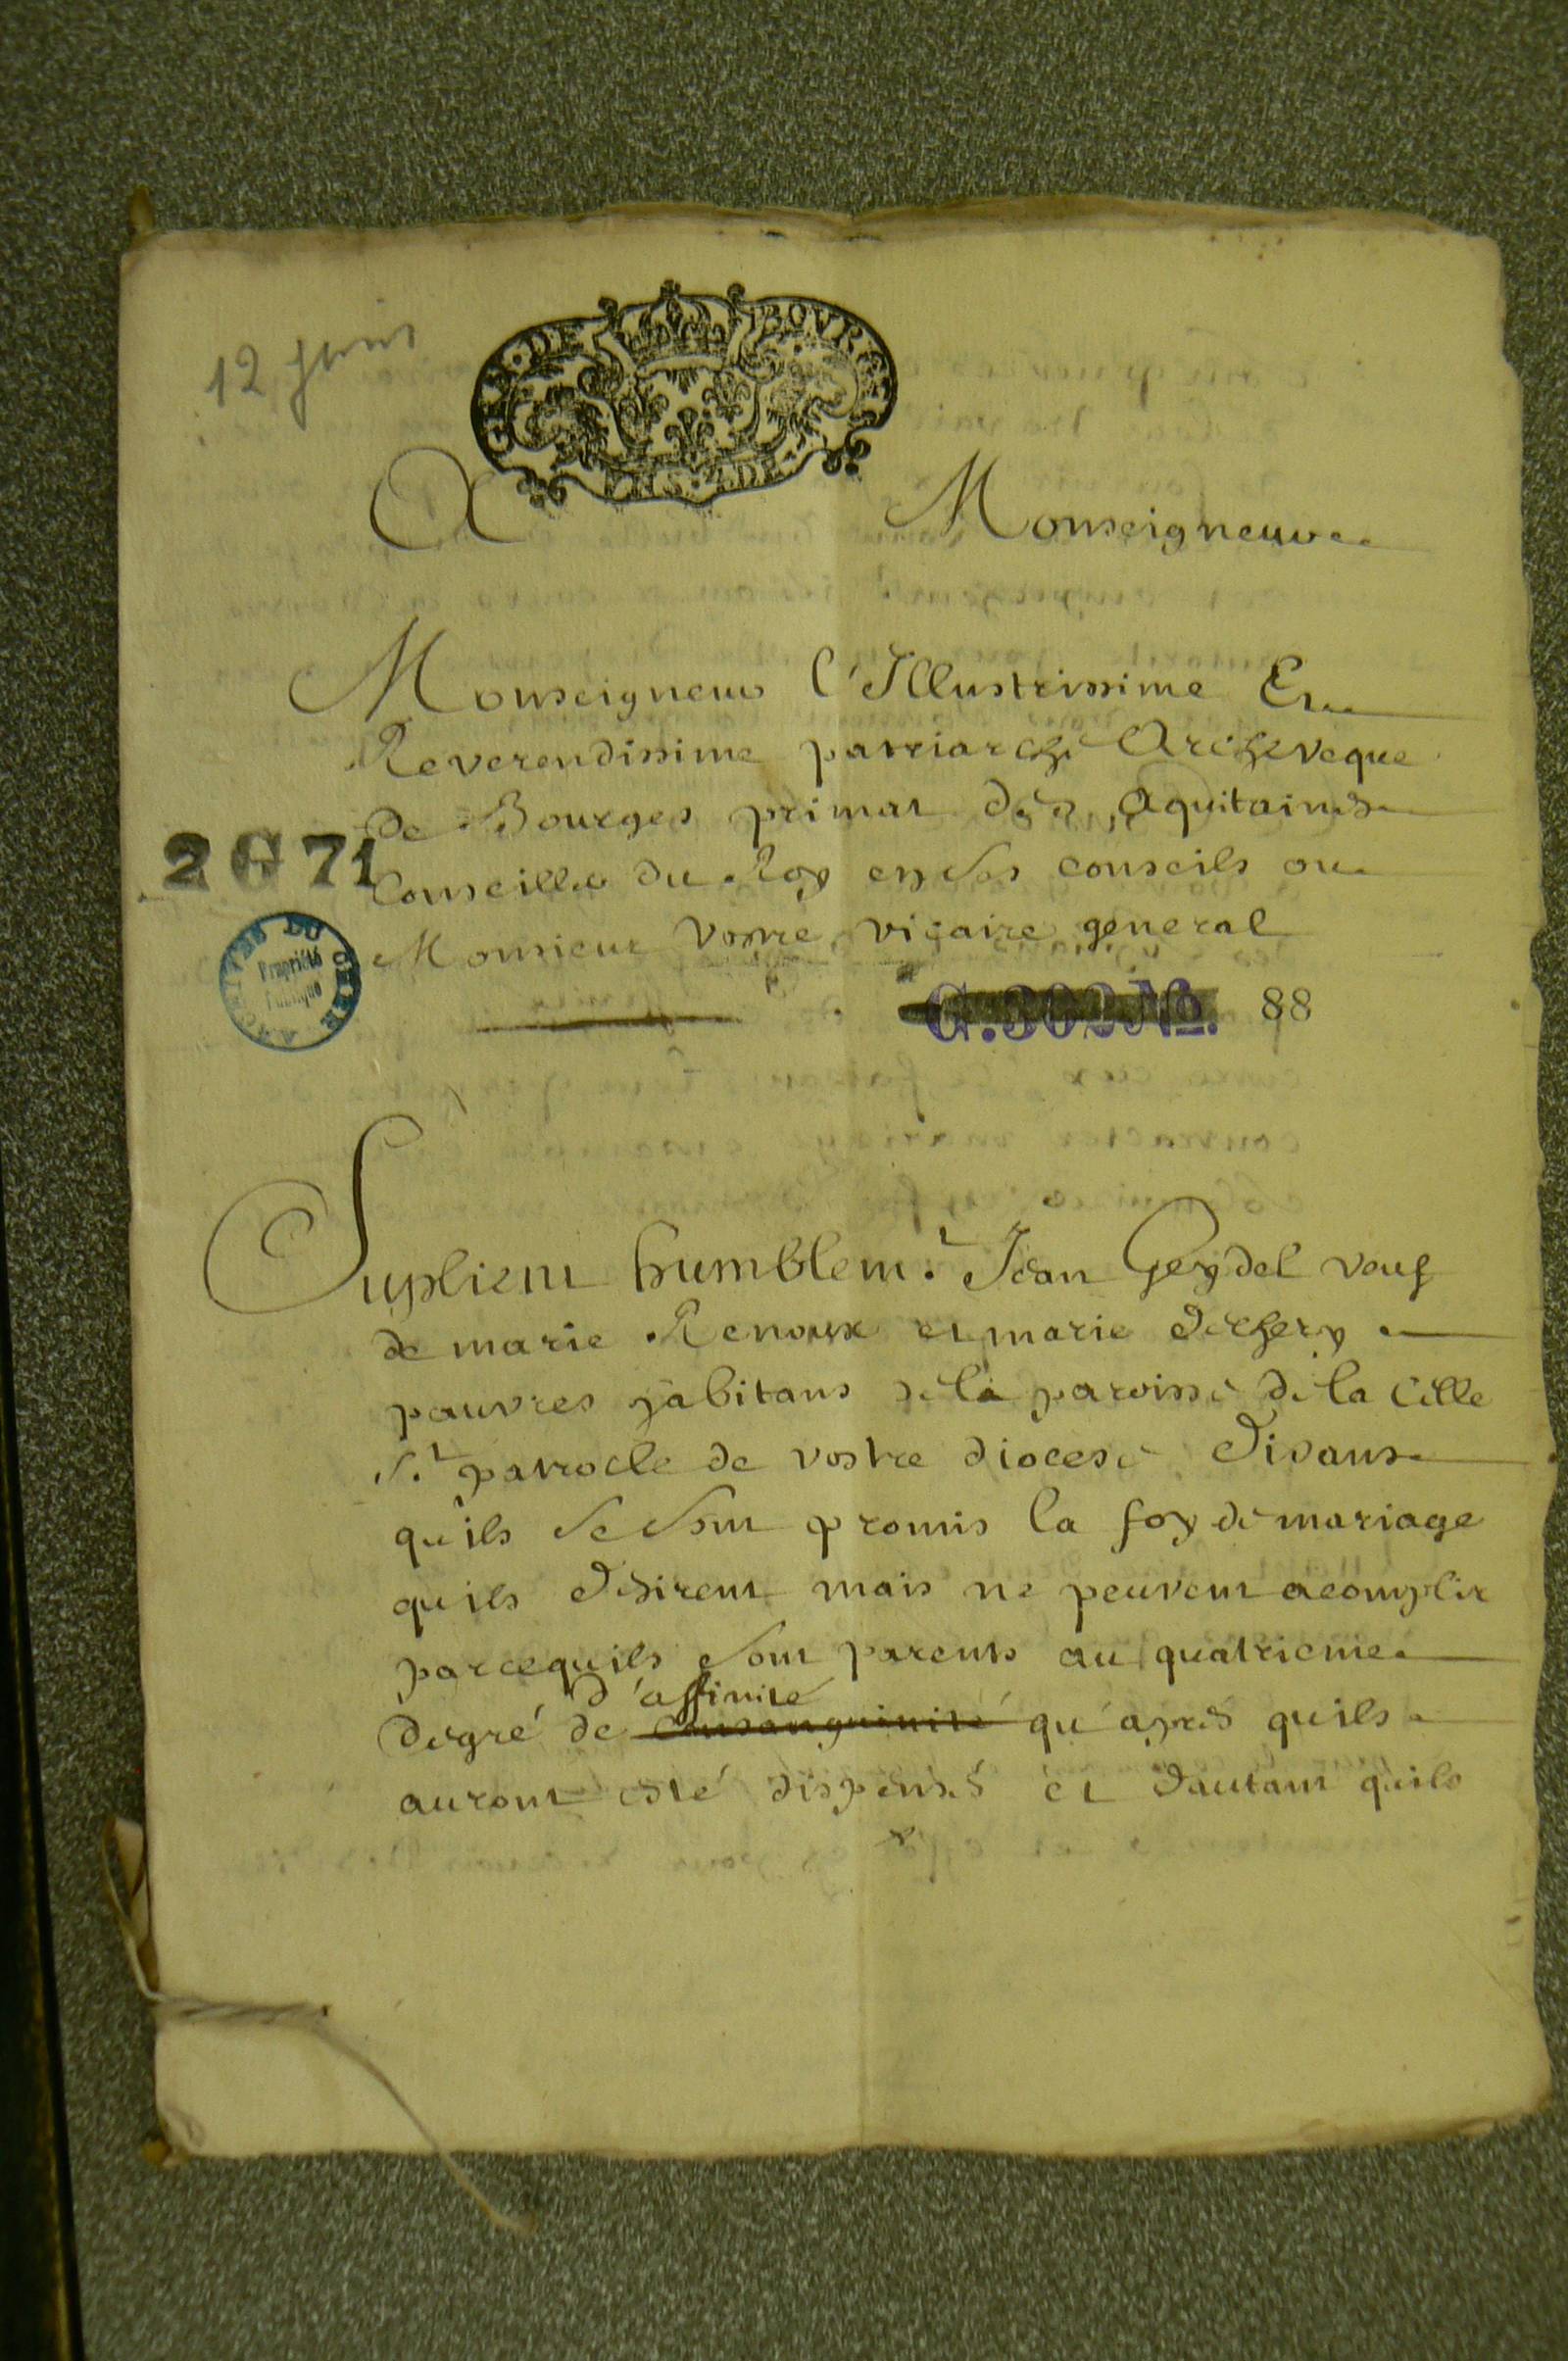 12 juin
GEN. DE BOURGES
A Monseigneur
Monseigneur l'Illustrissime Et
Reverendissime patriarche Archeveque
de Bourges primat des Aquitaines
2 G 71
Conseiller du Roy en ses conseils ou
Monsieur vostre vicaire general
ARCHIVES DU CHER
Propriété
Publique
G. 302 No. 88
Suplient humblemt. Jean Geydel veuf
de marie Renoux et marie dechery
pauvres habitans de la paroisse de la Celle
St. patrocle de vostre diocese Disans
qu'ils se sont promis la foy de mariage
qu'ils desirent mais ne peuvent acomplir
parcequ'ils sont parents au quatrieme
d'affinité
degré de consanguinité qu'après qu'ils
auront esté dispensés et dautant quils